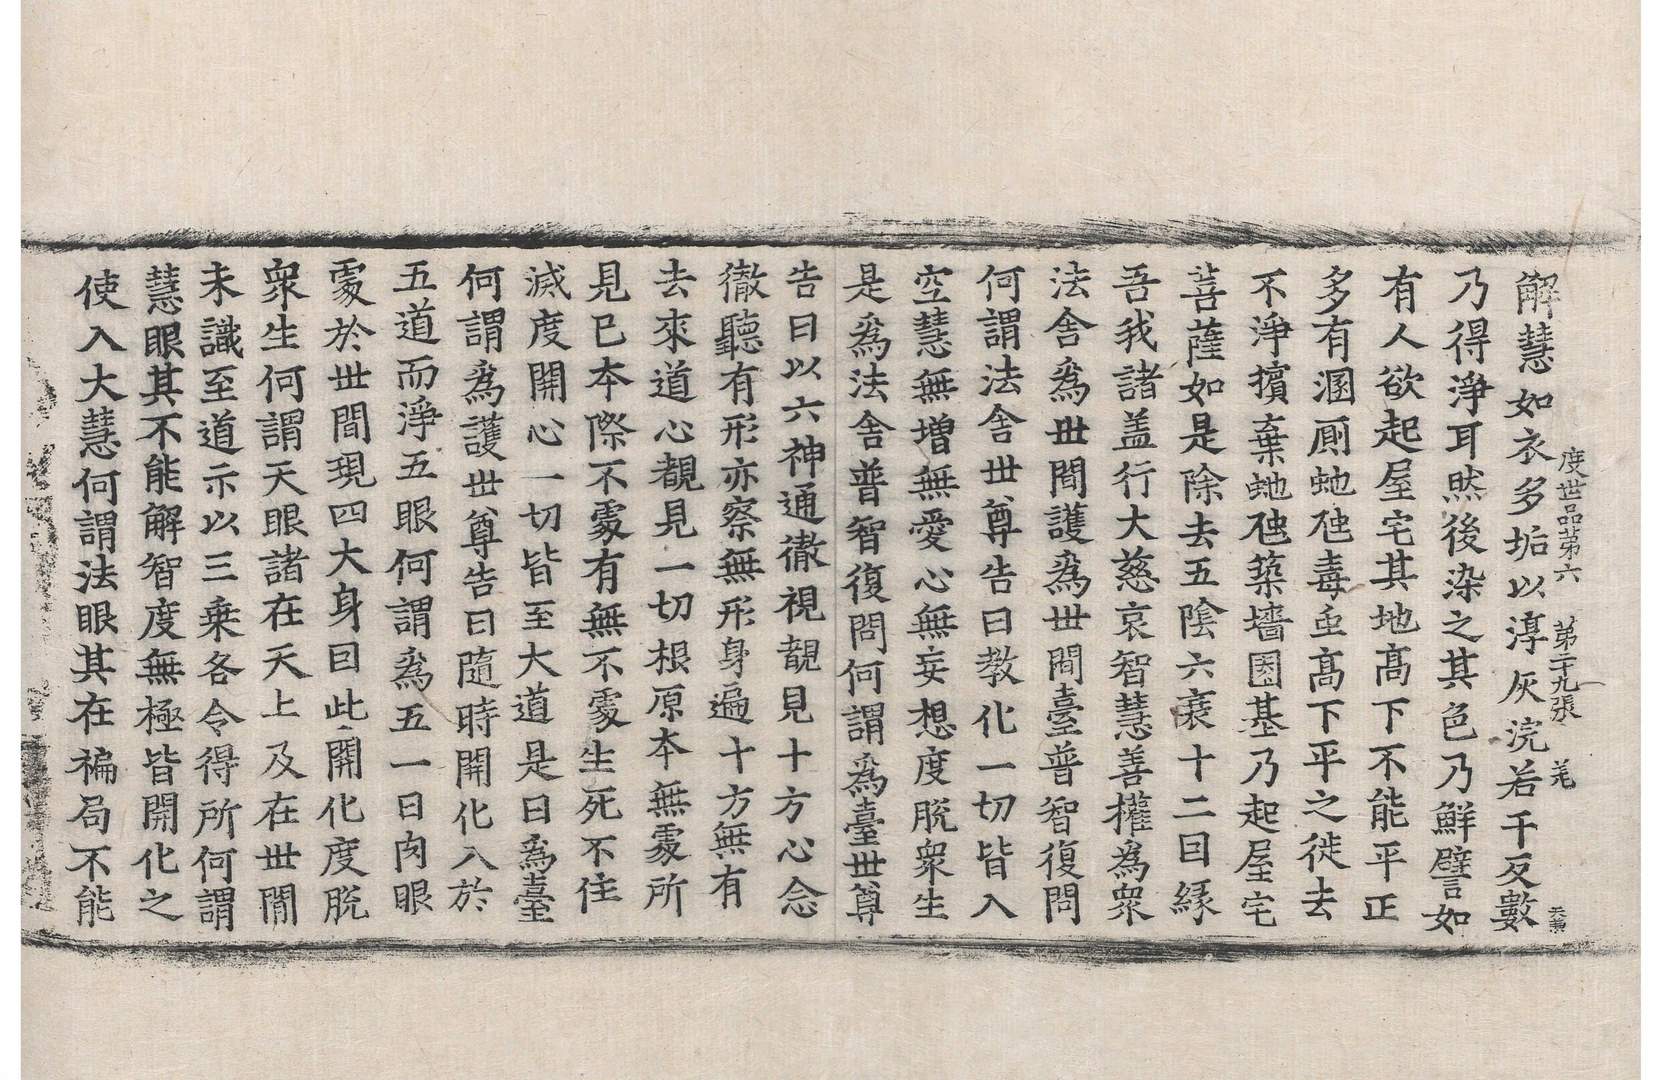 度世品第六　第二十九張　羌
天兼
解慧如衣多垢以淳灰浣若干反數
乃得淨耳然後染之其色乃鮮譬如
有人欲起屋宅其地高下不能平正
多有溷厠虵虺毒虫高下平之徙去
不淨擯棄虵虺築墻圂基乃起屋宅
菩薩如是除去五陰六衰十二因縁
吾我諸盖行大慈哀智慧善權為衆
法舍為世間護為世間臺普智復問
何謂法舍世尊告曰教化一切皆入
空慧無增無愛心無妄想度脫衆生
是為法舍普智復問何謂為臺世尊
告曰以六神通徹視覩見十方心念
徹聽有形亦察無形身遍十方無有
去來道心覩見一切根原本無處所
見已本際不處有無不處生死不住
滅度開心一切皆至大道是曰為臺
何謂為護世尊告曰隨時開化入於
五道而淨五眼何謂為五一曰肉眼
處於世間現四大身因此開化度脫
衆生何謂天眼諸在天上及在世間
未識至道示以三乗各令得所何謂
慧眼其不能解智度無極皆開化之
使入大慧何謂法眼其在褊局不能